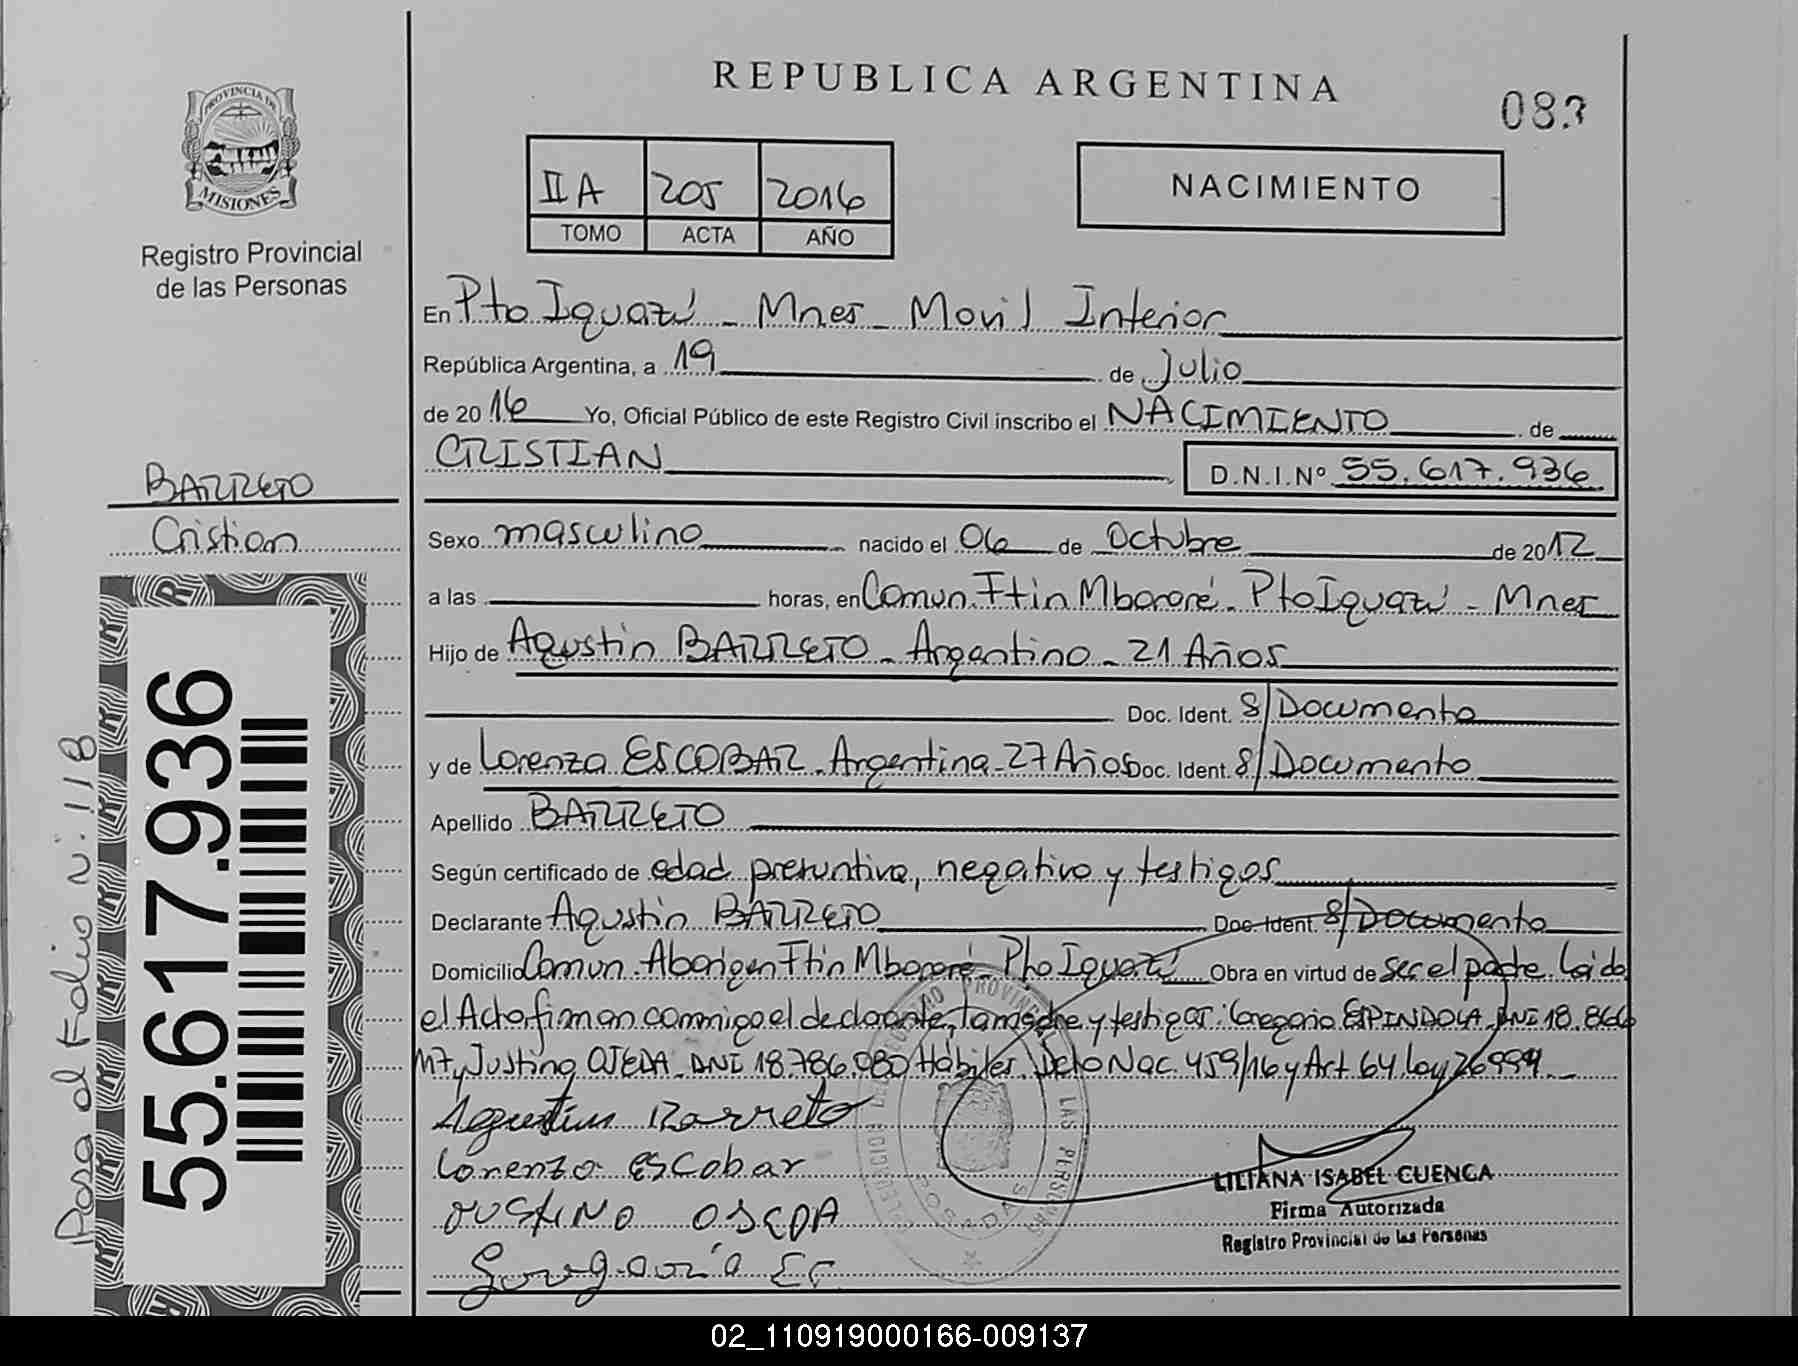 REPUBLICA ARGENTINA
083
PROVINCIA DE
MISIONES
Registro Provincial
de las Personas
II A 205 2016
TOMO ACTA AÑO
NACIMIENTO
En Pto Iguazú - Mnes - Movil Interior
República Argentina, a 19 de Julio
de 2016 Yo, Oficial Público de este Registro Civil inscribo el NACIMIENTO de
CRISTIAN D.N.I.Nº 55.617.936
BARRETO
Cristian
Sexo masculino nacido el 06 de Octubre de 2012
a las horas, en Comun. Ftin Mbororé. Pto Iguazú - Mnes
Hijo de Agustin BARRETO - Argentino - 21 Años
Doc. Ident. S/Documento
y de Lorenza ESCOBAR - Argentina - 27 Años Doc. Ident. S/Documento
Apellido BARRETO
Según certificado de edad presuntiva, negativo y testigos
Declarante Agustin BARRETO Doc. Ident. S/Documento
Domicilio Comun. Aborigen Ftin Mbororé - Pto Iguazú Obra en virtud de ser el padre. Leida
el Acta firman conmigo el declarante, la madre y testigos: Gregorio ESPINDOLA DNI 18.866
y Justino OJEDA - DNI 18.786.080 Hábiles. Dcto Nac. 459/16 y Art. 64 Ley 26994
Agustin Barreto
Lorenza Escobar
JUSTINO OJEDA
LILIANA ISABEL CUENCA
Firma Autorizada
Registro Provincial de las Personas
55.617.936
Pasa al Folio Nº 118
02_110919000166-009137